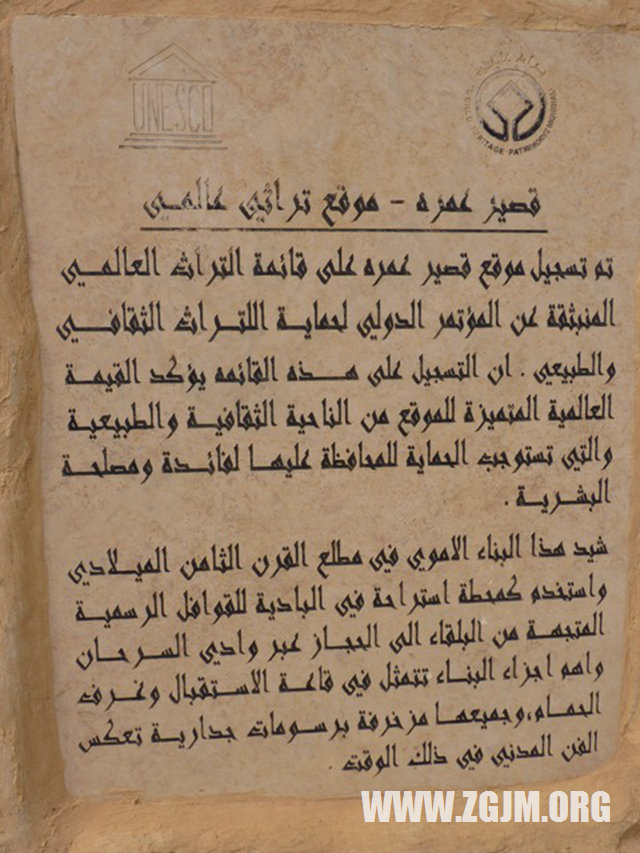 UNESCO
HERITAGE · PATRIMOINE
قصير عمره - موقع تراثي عالمي
تم تسجيل موقع قصير عمره على قائمة التراث العالمي
المنبثقة عن المؤتمر الدولي لحماية اللتراث الثقافي
والطبيعي . ان التسجيل على هذه القائمه يؤكد القيمة
العالمية المتميزة للموقع من الناحية الثقافية والطبيعية
والتي تستوجب الحماية للمحافظة عليها لفائدة ومصلحة
البشرية .
شيد هذا البناء الاموي في مطلع القرن الثامن الميلادي
واستخدم كمحطة استراحة في البادية للقوافل الرسمية
المتجهة من البلقاء الى الحجاز عبر وادي السرحان
واهم اجزاء البناء تتمثل في قاعة الاستقبال وغرف
الحمام،وجميعها مزخرفة برسومات جدارية تعكس
الفن المدني في ذلك الوقت .
WWW.ZGJM.ORG